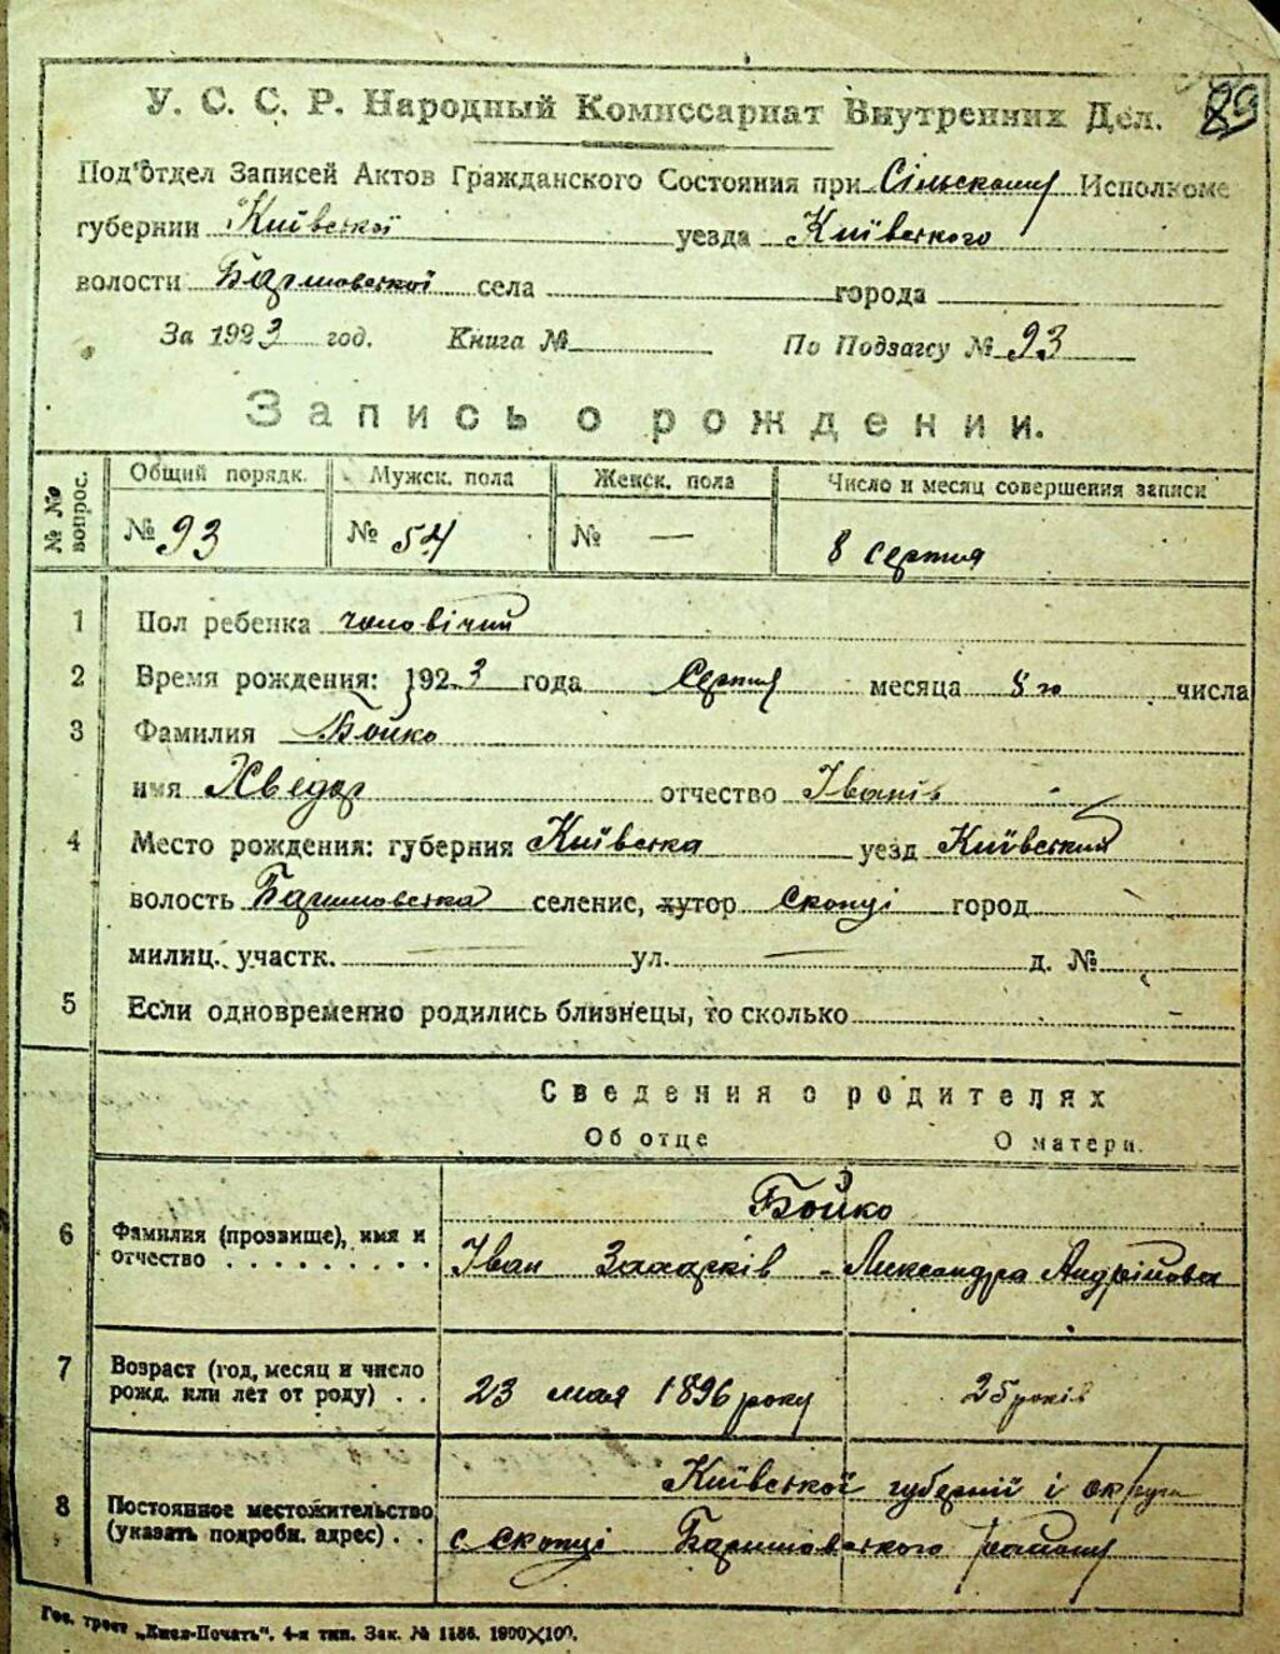 У. С. С. Р. Народный Комиссариат Внутренних Дел. 89
Под'отдел Записей Актов Гражданского Состояния при Сільському Исполкоме
губернии Київської уезда Київського
волости Баришовської села города
За 1923 год. Книга № По Подзагсу № 93
Запись о рождении.
№ № вопрос. Общий порядк. Мужск. пола Женск. пола Число и месяц совершения записи
№ 93 № 54 № — 8 серпня
1 Пол ребенка чоловічий
2 Время рождения: 1923 года Серпня месяца 8 го числа
3 Фамилия Бойко
имя Хведор отчество Іванів
4 Место рождения: губерния Київська уезд Київський
волость Баришовська селение, хутор Скопці город
милиц. участк. — ул. — д. №
5 Если одновременно родились близнецы, то сколько
Сведения о родителях
Об отце О матери.
6 Фамилия (прозвище), имя и отчество . . . . . . . . . Бойко
Іван Захарків - Александра Андріївова
7 Возраст (год, месяц и число рожд. или лет от роду) . . 23 мая 1896 року 25 років
8 Постоянное местожительство (указать подробн. адрес) . . Київської губернії і округи
с Скопці Баришовського району
Гос. трест „Киев-Печать". 4-я тип. Зак. № 1186. 1900×100.